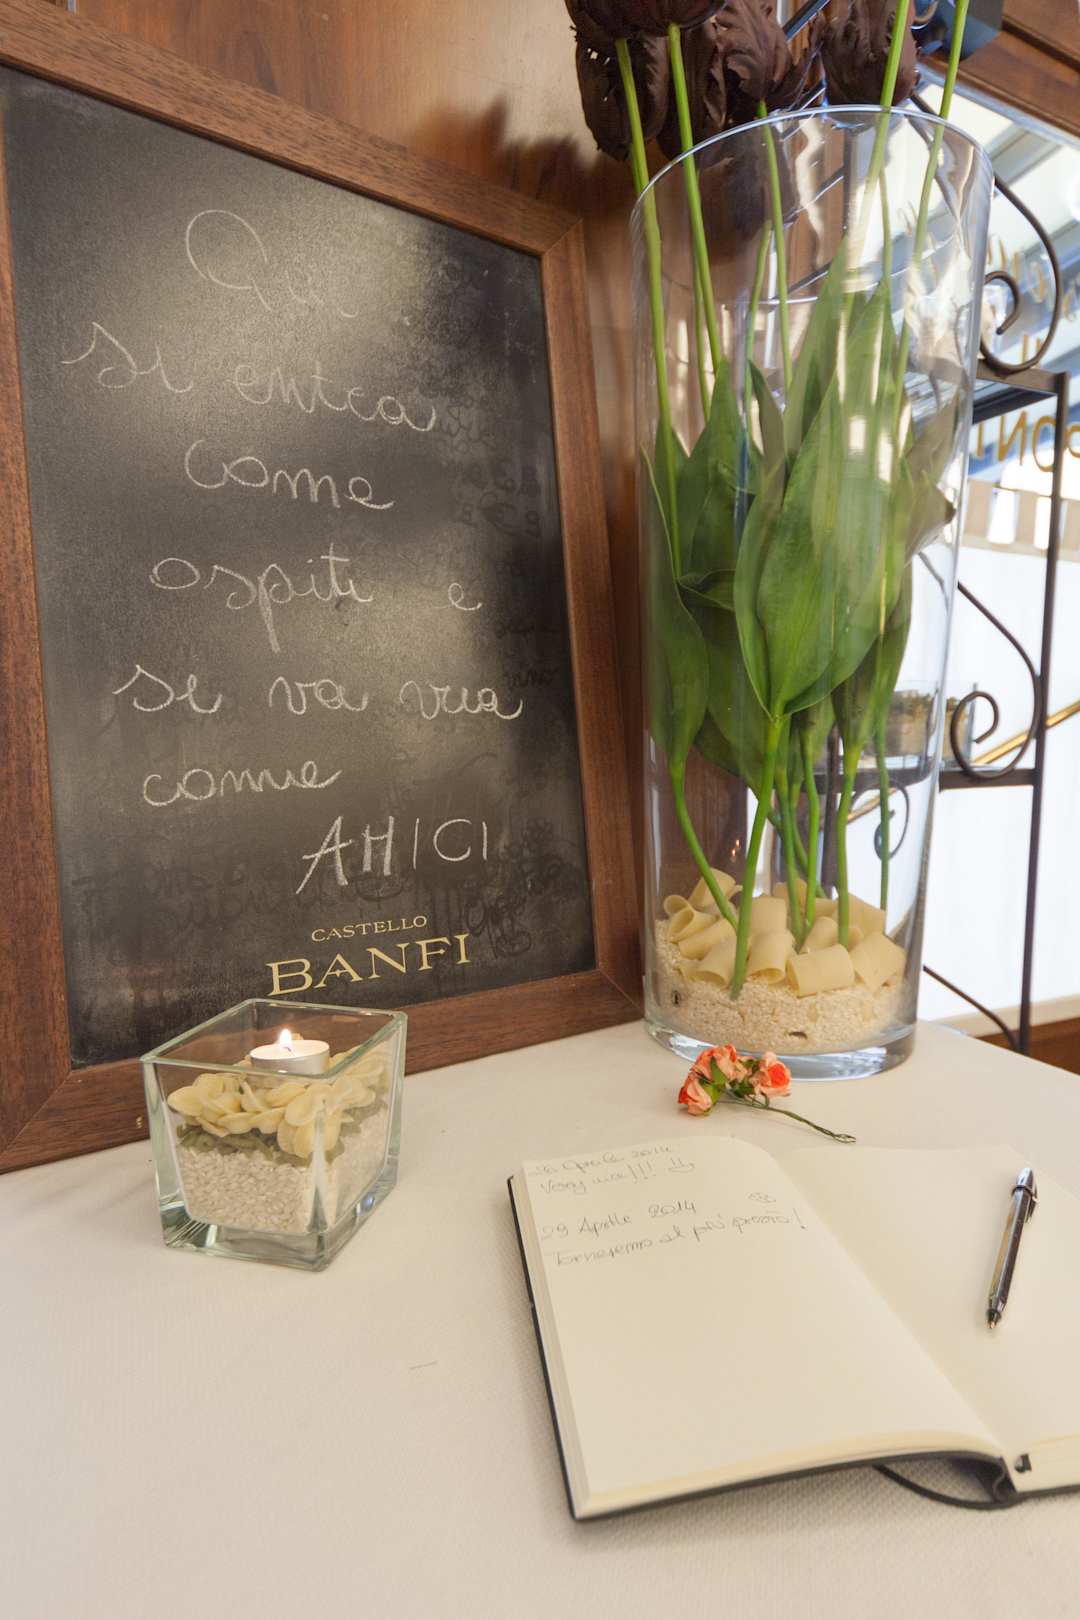 Qui
si entra
come
ospiti e
si va via
come
AMICI
CASTELLO
BANFI
26 Aprile 2014
Very nice!!!
29 Aprile 2014
Torneremo al più presto!